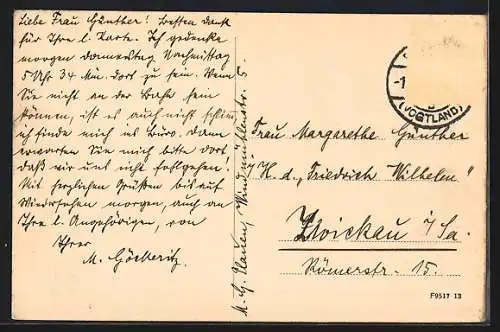 Liebe Frau Günther! Besten Dank
für Ihre l. Karte. Ich gedenke
morgen Donnerstag Nachmittag
5 Uhr 34 Min. dort zu sein. Wenn
Sie nicht an der Bahn sein
können, ist es auch nicht schlimm
ich finde mich ins Büro. Dann
erwarten Sie mich bitte dort
daß wir uns nicht fehlgehen!
Mit herzlichen Grüßen bis auf
Wiedersehen morgen, auch an
Ihre l. Angehörigen, von
Ihrer
M. Göckeritz.
M. G. Plauen, Windmühlenstr.
(VOGTLAND)
Frau Margarethe Günther
H. d. „Friedrich Wilhelm"
Zwickau i/Sa.
Römerstr. 15.
F9517 13